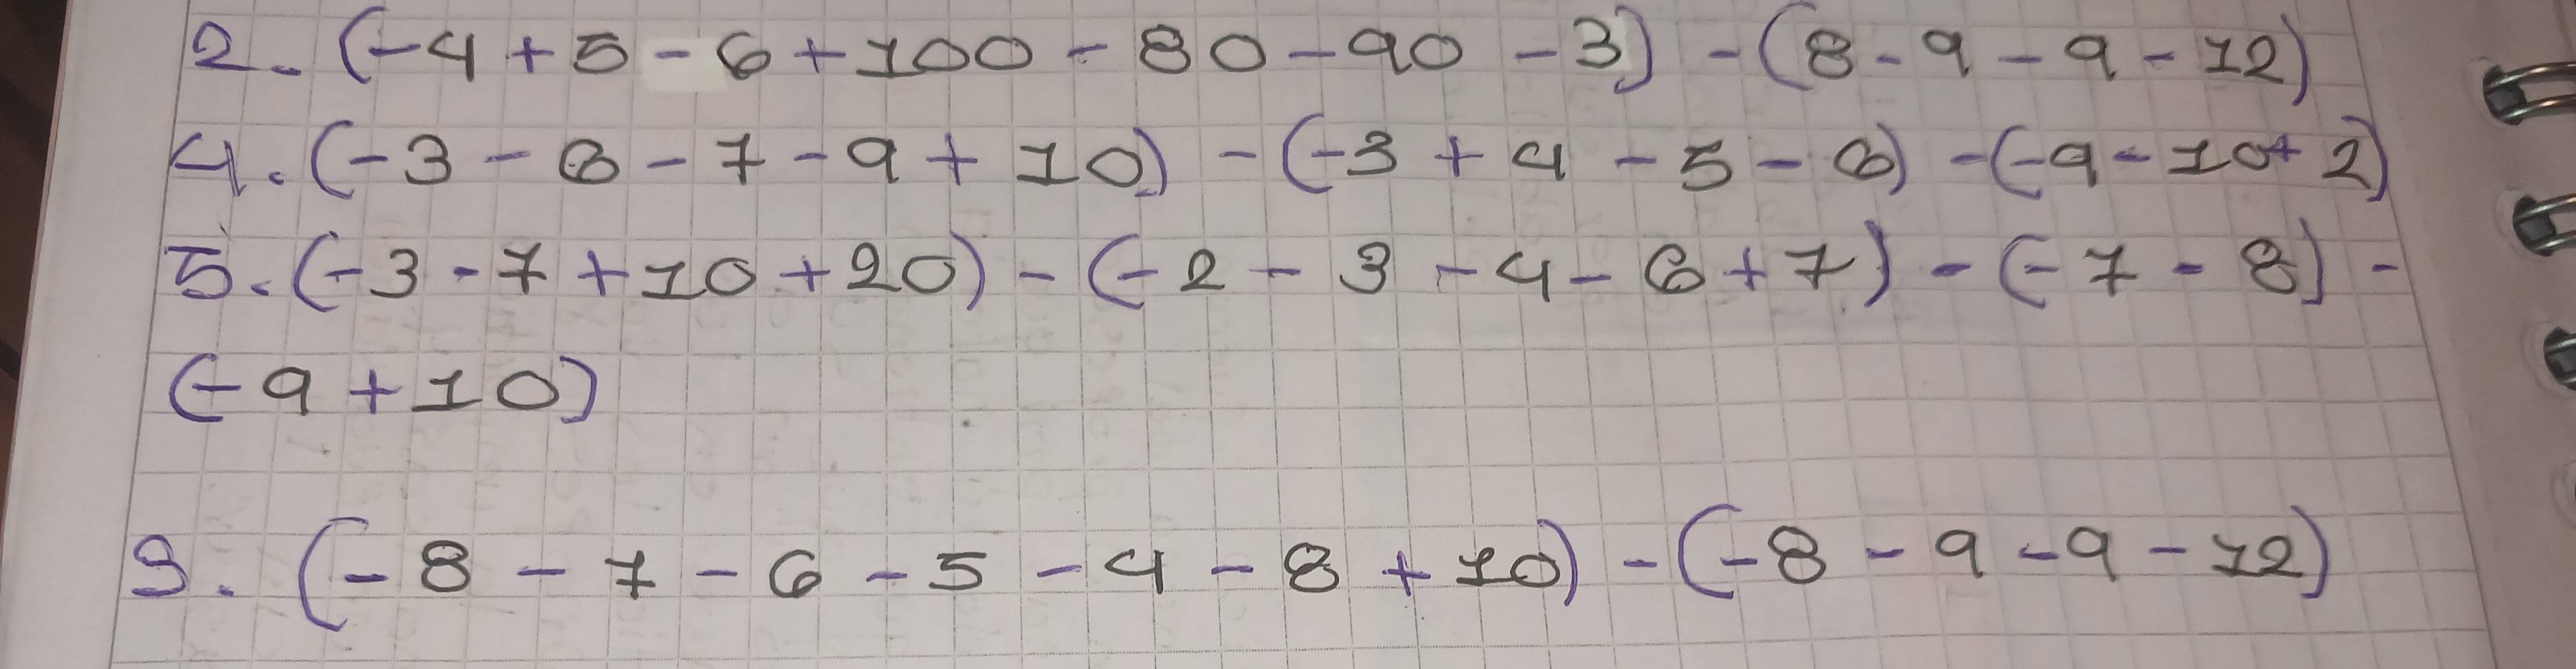 2. (-4+5-6+100-80-90-3) -(8-9-9-12)
4. (-3-6-7-9+10) -(-3+4-5-6) -(-9-10+2)
5. (-3-7+10+20) -(-2-3-4-6+7) -(-7-8) -
(-9+10)
9. (-8-7-6-5-4-8+10) -(-8-9-9-12)